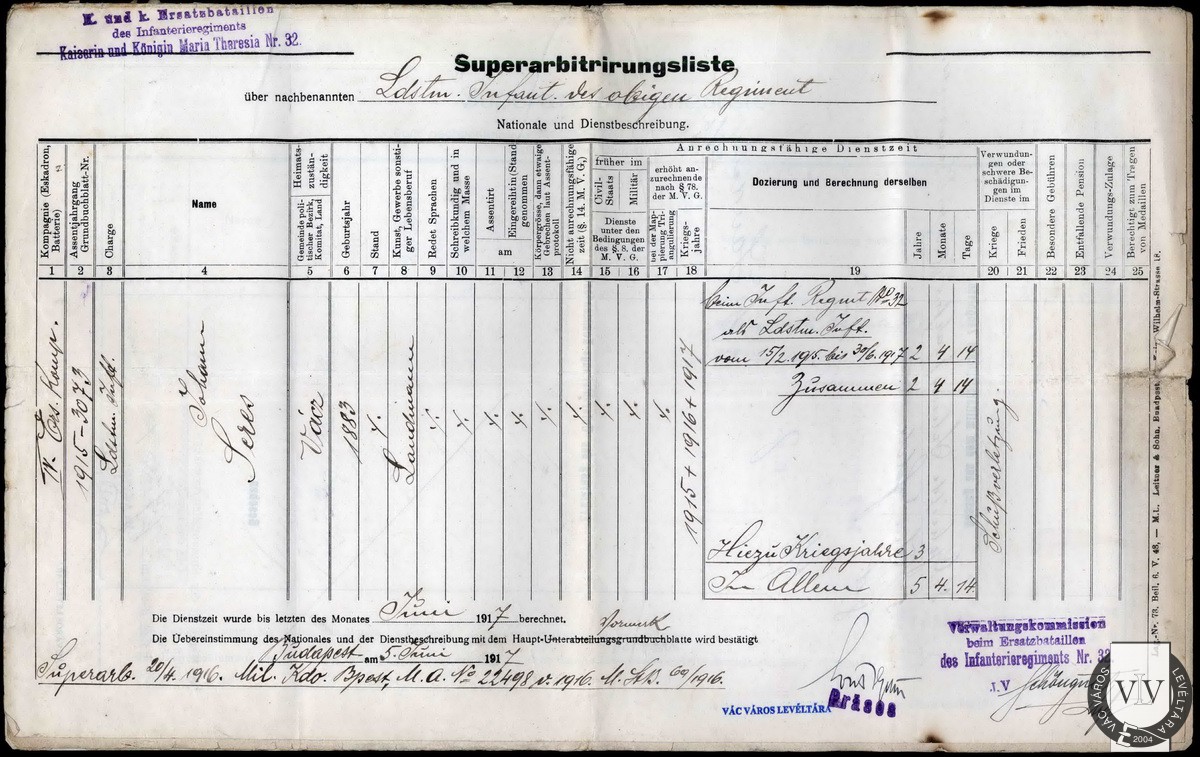 K. und k. Ersatzbataillon
des Infanterieregiments
Kaiserin und Königin Maria Theresia Nr. 32.
Superarbitrirungsliste
über nachbenannten Ldstm. Infant. des obigen Regiment
Nationale und Dienstbeschreibung.
Kompagnie (Eskadron, Batterie)
Assentjahrgang Grundbuchblatt-Nr.
Charge
Name
Heimats-zustän-digkeit
Gemeinde politischer Bezirk, Komitat, Land
Geburtsjahr
Stand
Kunst, Gewerbe sonstiger Lebensberuf
Redet Sprachen
Schreibkundig und in welchem Masse
Assentirt
Eingereiht in (Stand genommen)
am
Körpergrösse, dann etwaige Gebrechen laut Assent-protokoll
Nicht anrechnungsfähige zeit (§. 14. M. V. G.)
Anrechnungsfähige Dienstzeit
früher im
Civil-Staats
Militär
Dienste unter den Bedingungen des §. 8. der M. V. G.
erhöht anzurechnende nach § 78. der M. V. G.
bei der Mappierung Triangulierung
Kriegs-jahre
Dozierung und Berechnung derselben
Jahre
Monate
Tage
Verwundungen oder schwere Beschädigungen im Dienste im
Kriege
Frieden
Besondere Gebühren
Entfallende Pension
Verwundungs-Zulage
Berechtigt zum Tragen von Medaillen
1 2 3 4 5 6 7 8 9 10 11 12 13 14 15 16 17 18 19 20 21 22 23 24 25
Komp.
1915-3073
Ldstm. Inft.
Johann
Seres
Vácz
1883
Landmann
1915 + 1916 + 1917
beim Inft. Regmt No 32
als Ldstm. Inft.
vom 15/2. 195. bis 30/6. 1917 2 4 14
Zusammen 2 4 14
Schußverletzung
Hiezu Kriegsjahre 3
In Allem 5 4. 14
Die Dienstzeit wurde bis letzten des Monates Juni 1917 berechnet.
Vormerk
Die Uebereinstimmung des Nationales und der Dienstbeschreibung mit dem Haupt-Unterabteilungsgrundbuchblatte wird bestätigt
Budapest am 5. Juni 1917
Superarb. 20/4. 1916. Mil. Kdo. Bpest, M. A. No 22498 v. 1916. M. Stb. 60/1916.
Präses
VÁC VÁROS LEVÉLTÁRA
Verwaltungskommission
beim Ersatzbataillon
des Infanterieregiments Nr. 32
J. V
VÁC VÁROS LEVÉLTÁRA
VLV
2004
M.i. Leitner & Sohn, Budapest,
Wilhelm-Strasse 18.